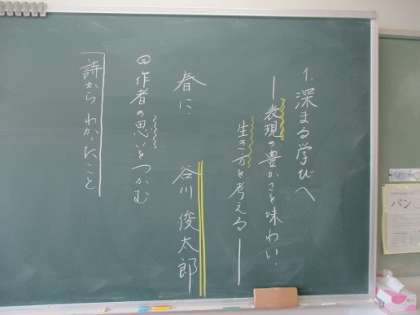 1. 深まる学びへ
―表現の豊かさを味わい、
生き方を考える―
春に 谷川 俊太郎
作者の思いをつかむ
詩から わかったこと
パン